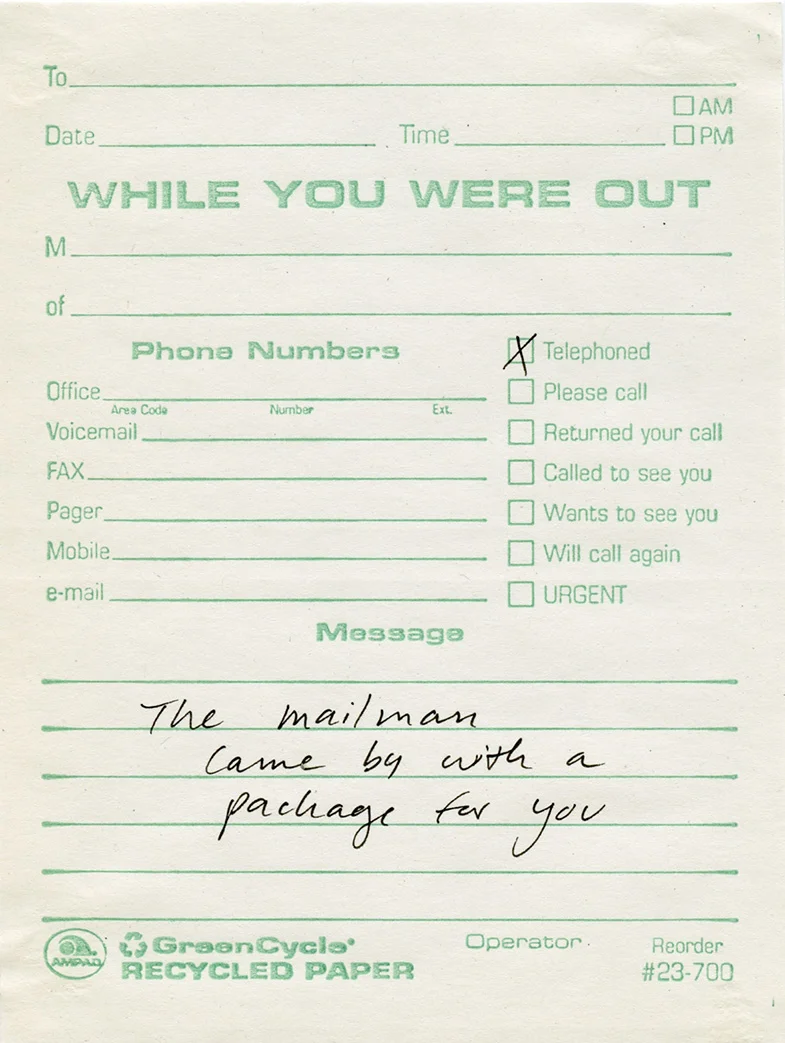 To
AM
Date Time PM
WHILE YOU WERE OUT
M
of
Phone Numbers
X Telephoned
Office
Area Code Number Ext.
Please call
Voicemail
Returned your call
FAX
Called to see you
Pager
Wants to see you
Mobile
Will call again
e-mail
URGENT
Message
The mailman
came by with a
package for you
AMPAD
GreenCycle
RECYCLED PAPER
Operator
Reorder
#23-700